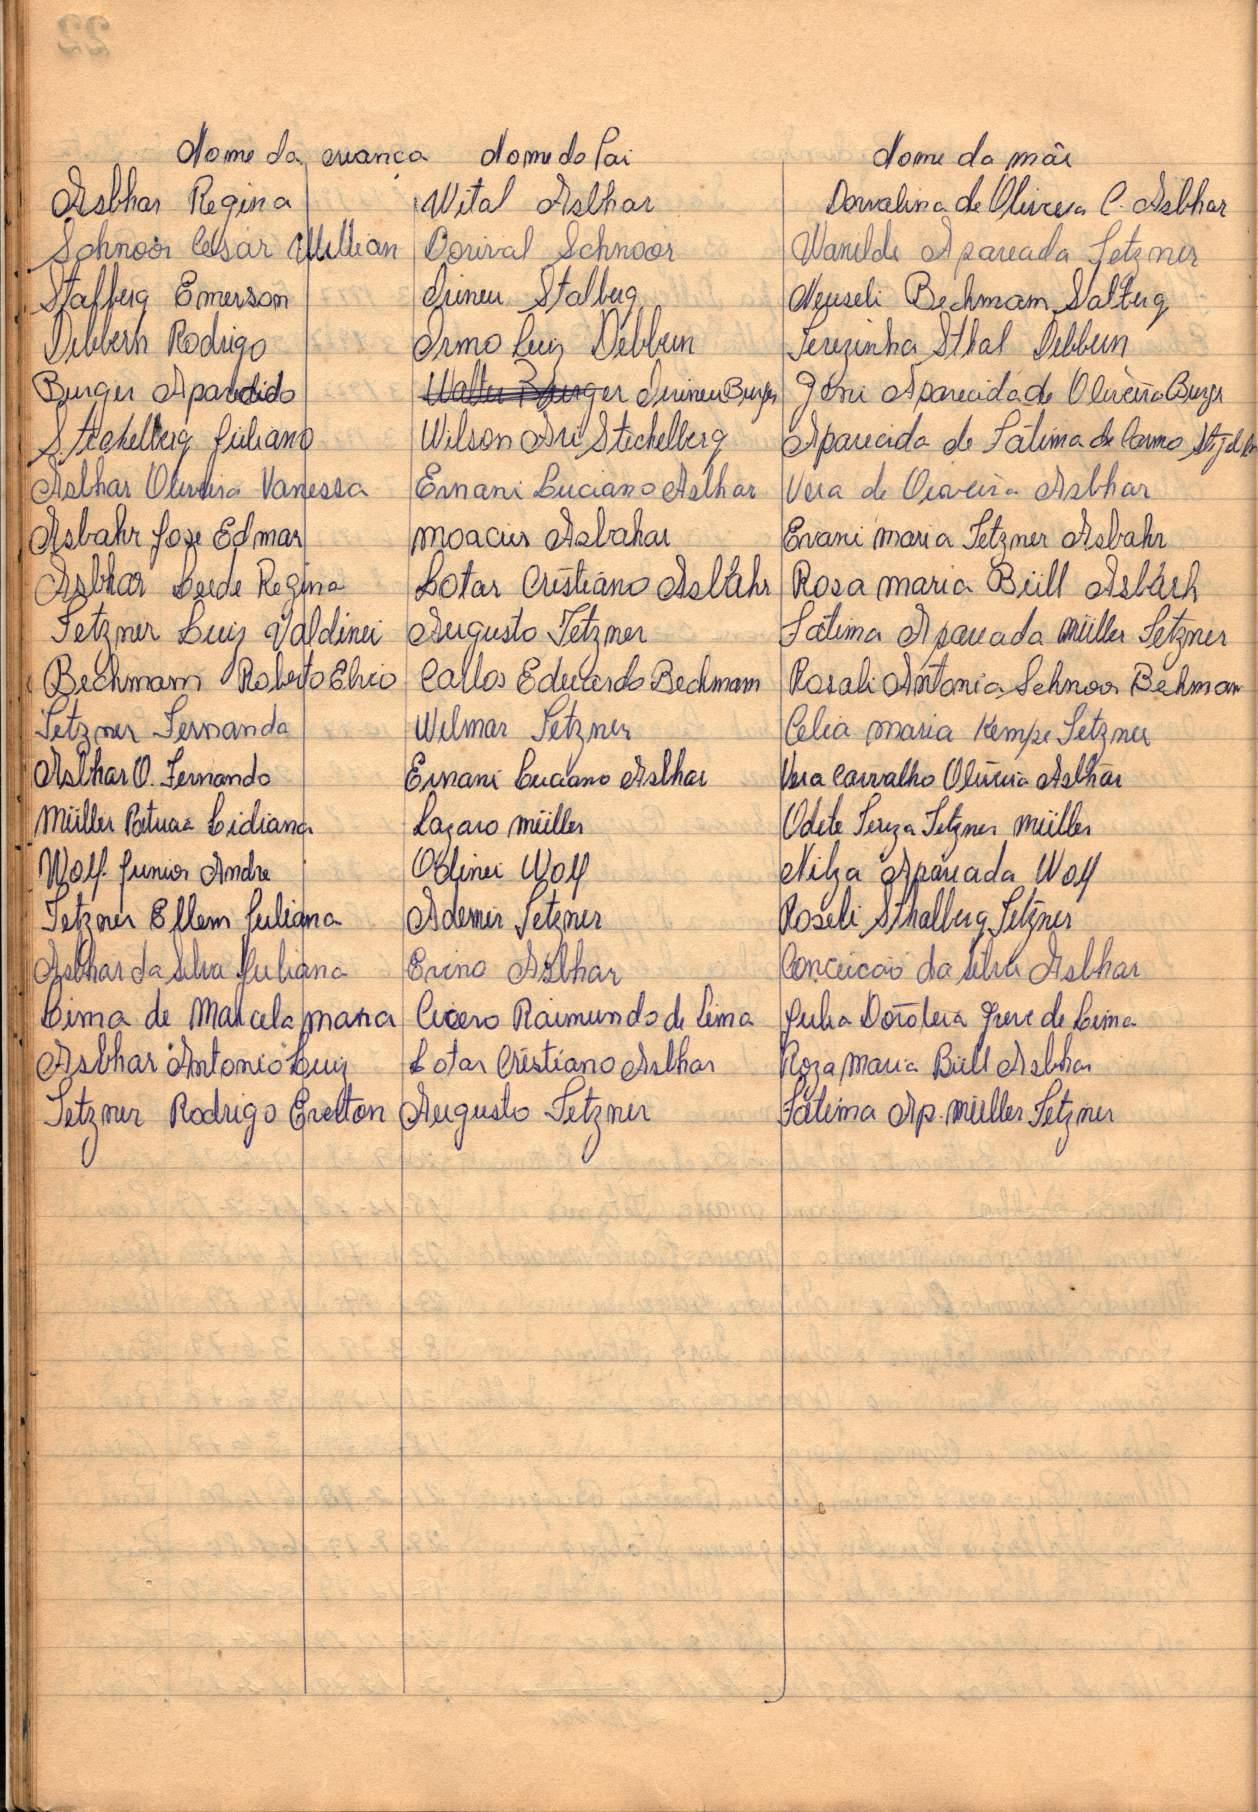 Nome da criança Nome do Pai Nome da mãe
Asbhar Regina Vital Asbhar Dorvalina de Oliveira C. Asbhar
Schnoor César Willian Dorival Schnoor Vanilde Aparecida Tetzner
Stalberg Emerson Irineu Stalberg Neuseli Bechmam Salberg
Dibbern Rodrigo Irmo Luiz Dibbern Terezinha Sthal Dibbern
Burger Aparedido Walter Burger Irineu Burger Joni Aparecida de Oliveira Burger
Steckelberg Juliano Wilson Ari Steckelberg Aparecida de Fátima de Carmo
Asbhar Oliveira Vanessa Ernani Luciano Asbhar Vera de Oraveira Asbhar
Asbahr Jose Edmar Moacir Asbahar Erani Maria Tetzner Asbahr
Asbhar Leide Regina Lotar Cristiano Asbahr Rosa maria Büll Asbarh
Tetzner Luiz Valdinei Augusto Tetzner Fátima Aparecada Müller Tetzner
Bechmam Roberto Elvio Carlos Eduardo Bechmam Rosali Antonia Schnoor Behmam
Tetzner Fernanda Wilmar Tetzner Celia maria Kempe Tetzner
Asbhar O. Fernando Ernani Luciano Asbhar Vera Carvalho Oliveira Asbhar
Müller Lidiana Lazaro müller Odete Tereza Tetzner müller
Wolf Junior Andre Odinei Wolf Nilza Aparecada Wolf
Tetzner Ellem Juliana Ademir Tetzner Roseli Sthalberg Tetzner
Asbhar da Silva Juliana Erino Asbhar Conceicão da Silva Asbhar
Lima de Marcela maria Cicero Raimundo de Lima Julia Dorotéia Greve de Lima
Asbhar Antonio Luiz Lotar Cristiano Asbhar Roza Maria Büll Asbhar
Tetzner Rodrigo Evelton Augusto Tetzner Fátima Ap. müller Tetzner